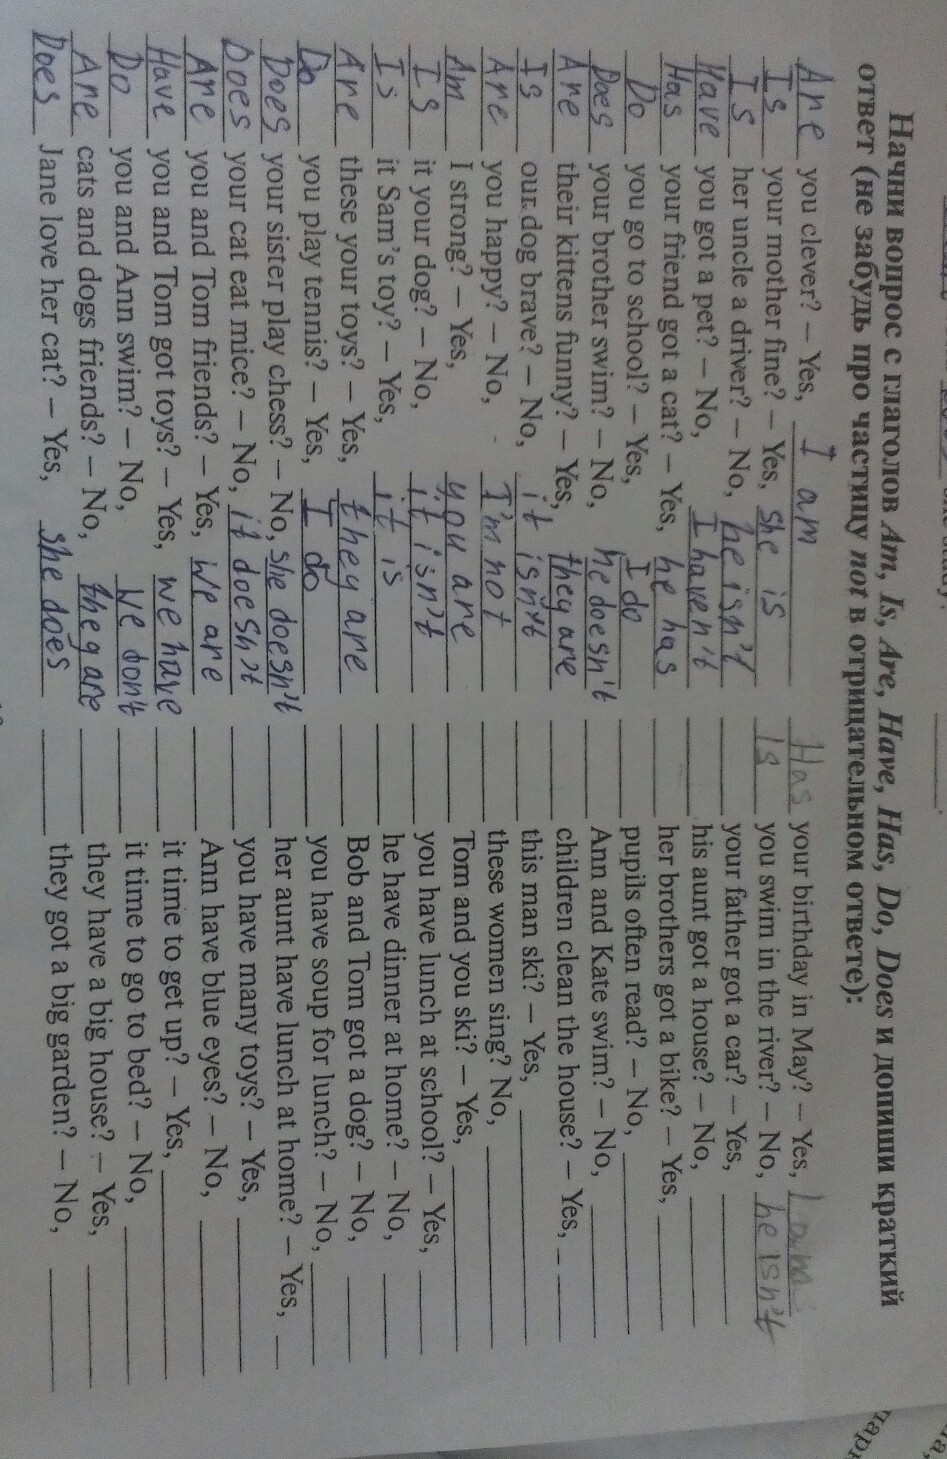 Начни вопрос с глаголов Am, Is, Are, Have, Has, Do, Does и допиши краткий
ответ (не забудь про частицу not в отрицательном ответе):
Are you clever? – Yes, I am
Is your mother fine? – Yes, she is
Is her uncle a driver? – No, he isn't
Have you got a pet? – No, I haven't
Has your friend got a cat? – Yes, he has
Do you go to school? – Yes, I do
Does your brother swim? – No, he doesn't
Are their kittens funny? – Yes, they are
Is our dog brave? – No, it isn't
Are you happy? – No, I'm not
Am I strong? – Yes, you are
Is it your dog? – No, it isn't
Is it Sam's toy? – Yes, it is
Are these your toys? – Yes, they are
Do you play tennis? – Yes, I do
Does your sister play chess? – No, she doesn't
Does your cat eat mice? – No, it doesn't
Are you and Tom friends? – Yes, we are
Have you and Tom got toys? – Yes, we have
Do you and Ann swim? – No, we don't
Are cats and dogs friends? – No, they are
Does Jane love her cat? – Yes, she does
Has your birthday in May? – Yes, I am
Is you swim in the river? – No, he isn't
your father got a car? – Yes,
his aunt got a house? – No,
her brothers got a bike? – Yes,
pupils often read? – No,
Ann and Kate swim? – No,
children clean the house? – Yes,
this man ski? – Yes,
these women sing? No,
Tom and you ski? – Yes,
you have lunch at school? – Yes,
he have dinner at home? – No,
Bob and Tom got a dog? – No,
you have soup for lunch? – No,
her aunt have lunch at home? – Yes,
you have many toys? – Yes,
Ann have blue eyes? – No,
it time to get up? – Yes,
it time to go to bed? – No,
they have a big house? – Yes,
they got a big garden? – No,